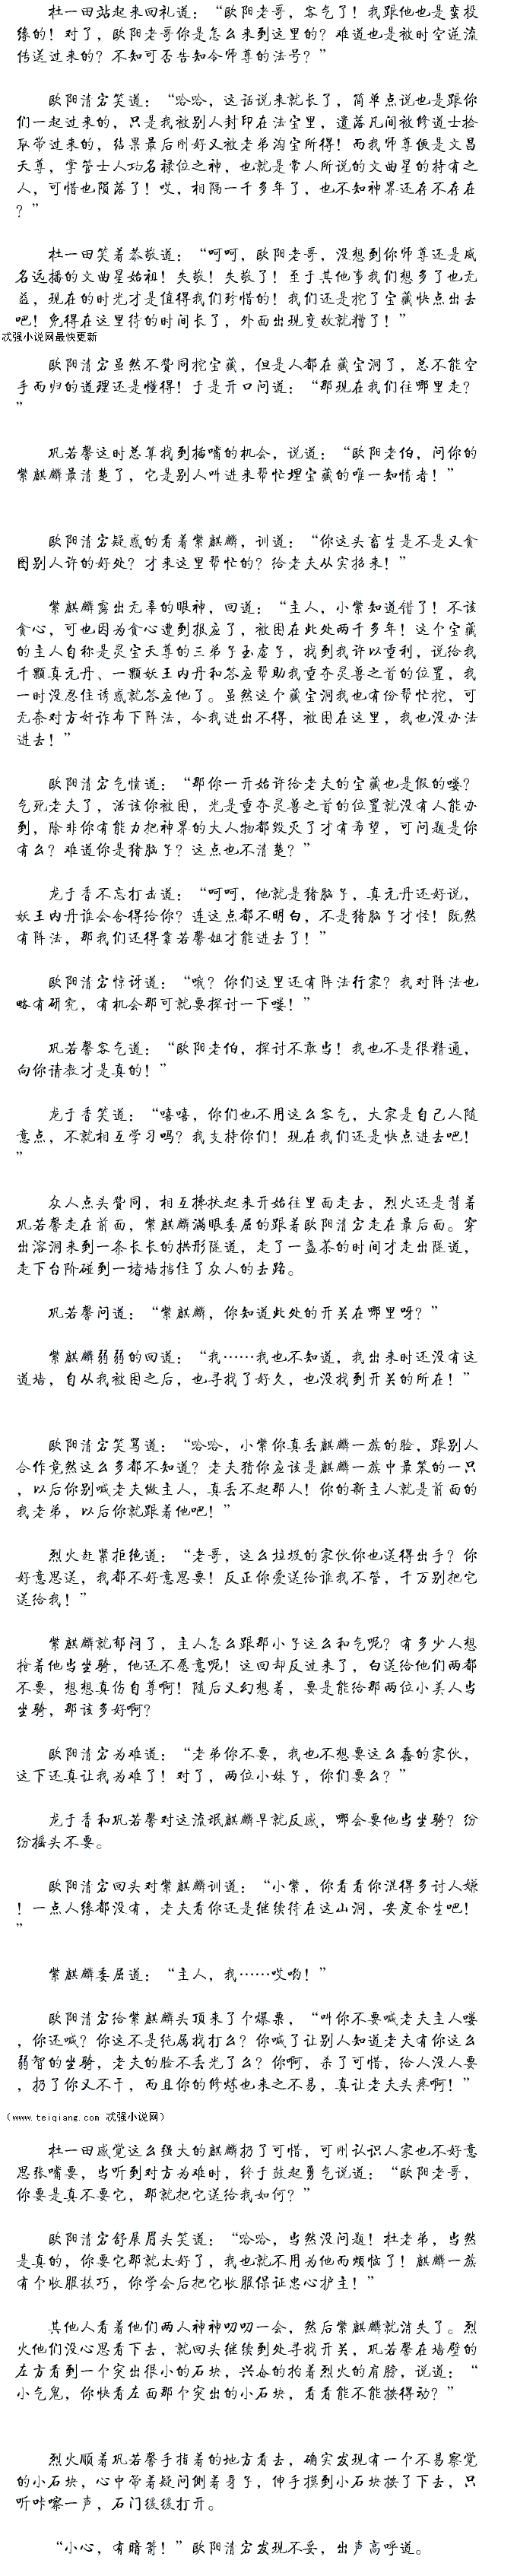 杜一田站起来回礼道：“欧阳老哥，客气了！我跟他也是蛮投
缘的！对了，欧阳老哥你是怎么来到这里的？难道也是被时空逆流
传送过来的？不知可否告知令师尊的法号？”
欧阳清宕笑道：“哈哈，这话说来就长了，简单点说也是跟你
们一起过来的，只是我被别人封印在法宝里，遗落凡间被修道士捡
取带过来的，结果最后刚好又被老弟淘宝所得！而我师尊便是文昌
天尊，掌管士人功名禄位之神，也就是常人所说的文曲星的持有之
人，可惜也陨落了！哎，相隔一千多年了，也不知神界还存不存在
？”
杜一田笑着恭敬道：“呵呵，欧阳老哥，没想到你师尊还是威
名远播的文曲星始祖！失敬！失敬了！至于其他事我们想多了也无
益，现在的时光才是值得我们珍惜的！我们还是挖了宝藏快点出去
吧！免得在这里待的时间长了，外面出现变故就糟了！”
忒强小说网最快更新
欧阳清宕虽然不赞同挖宝藏，但是人都在藏宝洞了，总不能空
手而归的道理还是懂得！于是开口问道：“那现在我们往哪里走？
”
巩若馨这时总算找到插嘴的机会，说道：“欧阳老伯，问你的
紫麒麟最清楚了，它是别人叫进来帮忙埋宝藏的唯一知情者！”
欧阳清宕疑惑的看着紫麒麟，训道：“你这头畜生是不是又贪
图别人许的好处？才来这里帮忙的？给老夫从实招来！”
紫麒麟露出无辜的眼神，回道：“主人，小紫知道错了！不该
贪心，可也因为贪心遭到报应了，被困在此处两千多年！这个宝藏
的主人自称是灵宝天尊的三弟子玉虚子，找到我许以重利，说给我
千颗真元丹、一颗妖王内丹和答应帮助我重夺灵兽之首的位置，我
一时没忍住诱惑就答应他了。虽然这个藏宝洞我也有份帮忙挖，可
无奈对方奸诈布下阵法，令我进出不得，被困在这里，我也没办法
进去！”
欧阳清宕气愤道：“那你一开始许给老夫的宝藏也是假的喽？
气死老夫了，活该你被困，光是重夺灵兽之首的位置就没有人能办
到，除非你有能力把神界的大人物都毁灭了才有希望，可问题是你
有么？难道你是猪脑子？这点也不清楚？”
龙于香不忘打击道：“呵呵，他就是猪脑子，真元丹还好说，
妖王内丹谁会舍得给你？连这点都不明白，不是猪脑子才怪！既然
有阵法，那我们还得靠若馨姐才能进去了！”
欧阳清宕惊讶道：“哦？你们这里还有阵法行家？我对阵法也
略有研究，有机会那可就要探讨一下喽！”
巩若馨客气道：“欧阳老伯，探讨不敢当！我也不是很精通，
向你请教才是真的！”
龙于香笑道：“嘻嘻，你们也不用这么客气，大家是自己人随
意点，不就相互学习吗？我支持你们！现在我们还是快点进去吧！
”
众人点头赞同，相互搀扶起来开始往里面走去，烈火还是背着
巩若馨走在前面，紫麒麟满眼委屈的跟着欧阳清宕走在最后面。穿
出溶洞来到一条长长的拱形隧道，走了一盏茶的时间才走出隧道，
走下台阶碰到一堵墙挡住了众人的去路。
巩若馨问道：“紫麒麟，你知道此处的开关在哪里呀？”
紫麒麟弱弱的回道：“我……我也不知道，我出来时还没有这
道墙，自从我被困之后，也寻找了好久，也没找到开关的所在！”
欧阳清宕笑骂道：“哈哈，小紫你真丢麒麟一族的脸，跟别人
合作竟然这么多都不知道？老夫猜你应该是麒麟一族中最笨的一只
，以后你别喊老夫做主人，真丢不起那人！你的新主人就是前面的
我老弟，以后你就跟着他吧！”
烈火赶紧拒绝道：“老哥，这么垃圾的家伙你也送得出手？你
好意思送，我都不好意思要！反正你爱送给谁我不管，千万别把它
送给我！”
紫麒麟就郁闷了，主人怎么跟那小子这么和气呢？有多少人想
抢着他当坐骑，他还不愿意呢！这回却反过来了，白送给他们两都
不要，想想真伤自尊啊！随后又幻想着，要是能给那两位小美人当
坐骑，那该多好啊？
欧阳清宕为难道：“老弟你不要，我也不想要这么蠢的家伙，
这下还真让我为难了！对了，两位小妹子，你们要么？”
龙于香和巩若馨对这流氓麒麟早就反感，哪会要他当坐骑？纷
纷摇头不要。
欧阳清宕回头对紫麒麟训道：“小紫，你看看你混得多讨人嫌
！一点人缘都没有，老夫看你还是继续待在这山洞，安度余生吧！
”
紫麒麟委屈道：“主人，我……哎哟！”
欧阳清宕给紫麒麟头顶来了个爆栗，“叫你不要喊老夫主人喽
，你还喊？你这不是纯属找打么？你喊了让别人知道老夫有你这么
弱智的坐骑，老夫的脸不丢光了么？你啊，杀了可惜，给人没人要
，扔了你又不干，而且你的修炼也来之不易，真让老夫头疼啊！”
（www.teiqiang.com 忒强小说网）
杜一田感觉这么强大的麒麟扔了可惜，可刚认识人家也不好意
思张嘴要，当听到对方为难时，终于鼓起勇气说道：“欧阳老哥，
你要是真不要它，那就把它送给我如何？”
欧阳清宕舒展眉头笑道：“哈哈，当然没问题！杜老弟，当然
是真的，你要它那就太好了，我也就不用为他而烦恼了！麒麟一族
有个收服技巧，你学会后把它收服保证忠心护主！”
其他人看着他们两人神神叨叨一会，然后紫麒麟就消失了。烈
火他们没心思看下去，就回头继续到处寻找开关，巩若馨在墙壁的
左方看到一个突出很小的石块，兴奋的拍着烈火的肩膀，说道：“
小气鬼，你快看左面那个突出的小石块，看看能不能按得动？”
烈火顺着巩若馨手指着的地方看去，确实发现有一个不易察觉
的小石块，心中带着疑问侧着身子，伸手摸到小石块按了下去，只
听咔嚓一声，石门缓缓打开。
“小心，有暗箭！”欧阳清宕发现不妥，出声高呼道。